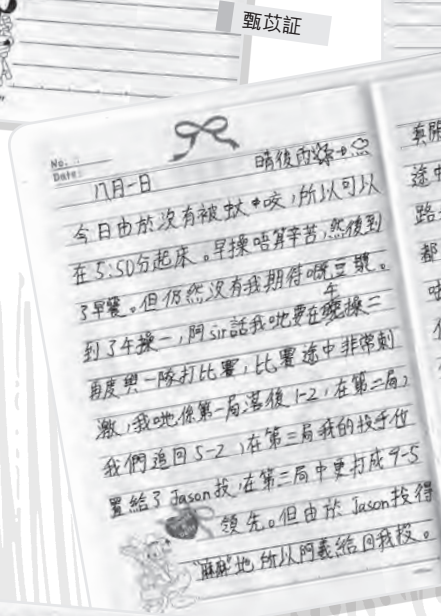 甄苡証
No. :
Date:
八月一日 晴後雨
今日由於沒有被蚊咬，所以可以
在5:50分起床。早操唔算辛苦，然後到
了早餐。但仍然沒有我期待嘅豆漿。
到了午操一，阿sir話我哋要在午操二
再度與一隊打比賽，比賽途中非常刺
激，我哋係第一局落後1-2，在第二局，
我們追回5-2，在第三局我的投手位
置給了Jason投，在第三局中更打成9-5
領先。但由於Jason投得
"麻麻"地所以阿義給回我投。
真
途中
路
都